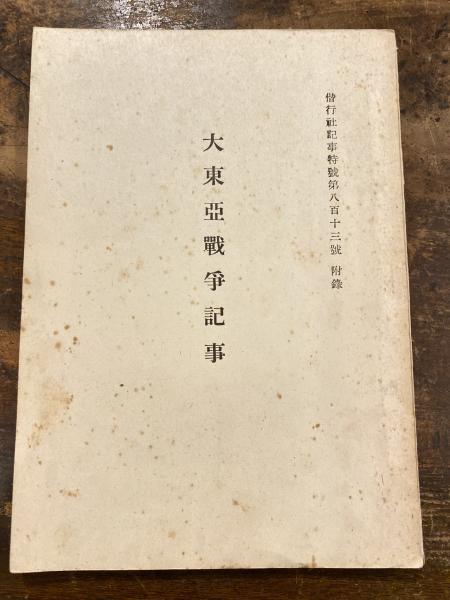 偕行社記事特號第八百十三號 附錄
大東亞戰爭記事